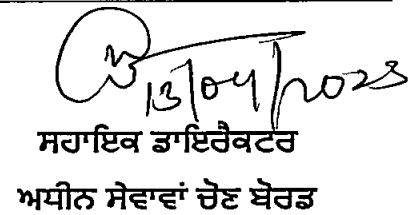 13/04/2023
ਸਹਾਇਕ ਡਾਇਰੈਕਟਰ
ਅਧੀਨ ਸੇਵਾਵਾਂ ਚੋਣ ਬੋਰਡ